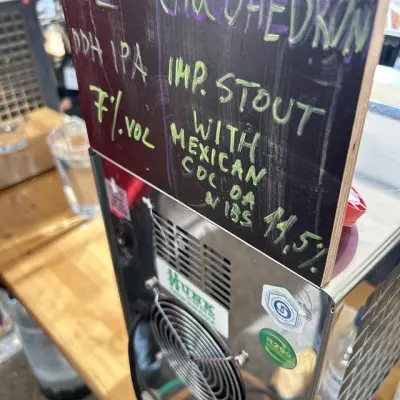 DDH IPA
7% VOL
IMP. STOUT
WITH
MEXICAN
COCOA
NIBS 11,5%